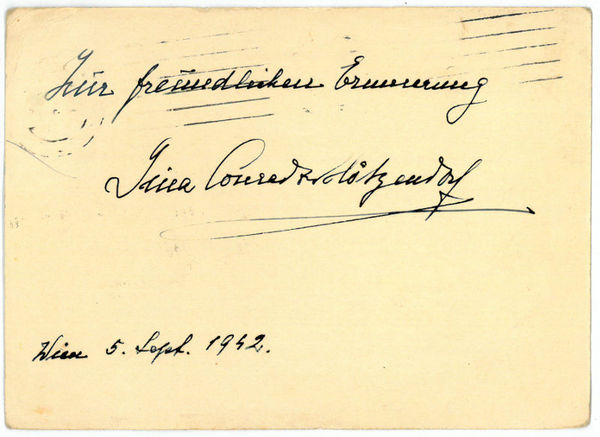 Zur freundlichen Erinnerung
Gina Conrad v Hötzendorf
Wien 5. Sept. 1942.